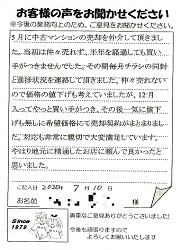 お客様の声をお聞かせください
※今後の業務向上のため、ご意見をお聞かせください。
5月に中古マンションの売却を仲介して頂きました。
当初は仲々売れず、半年を経過しても買い手がつきませんでした。
その間毎月チラシの同封と進捗状況を連絡して頂きました。
仲々売れないので価格の値下げも考えていましたが、12月
入ってやっと買い手がつき、その後一気に値下げも無しに
希望価格にて売却契約がまとまりました。
対応も非常に親切で大変満足しています。
やはり地元に精通したお店に頼んで良かったと思いました。
ご記入日 2020年 7月 10日
お名前 様
Since
1979
貴重なご意見ありがとうございました!
今後も頑張りますので
よろしくお願いいたします